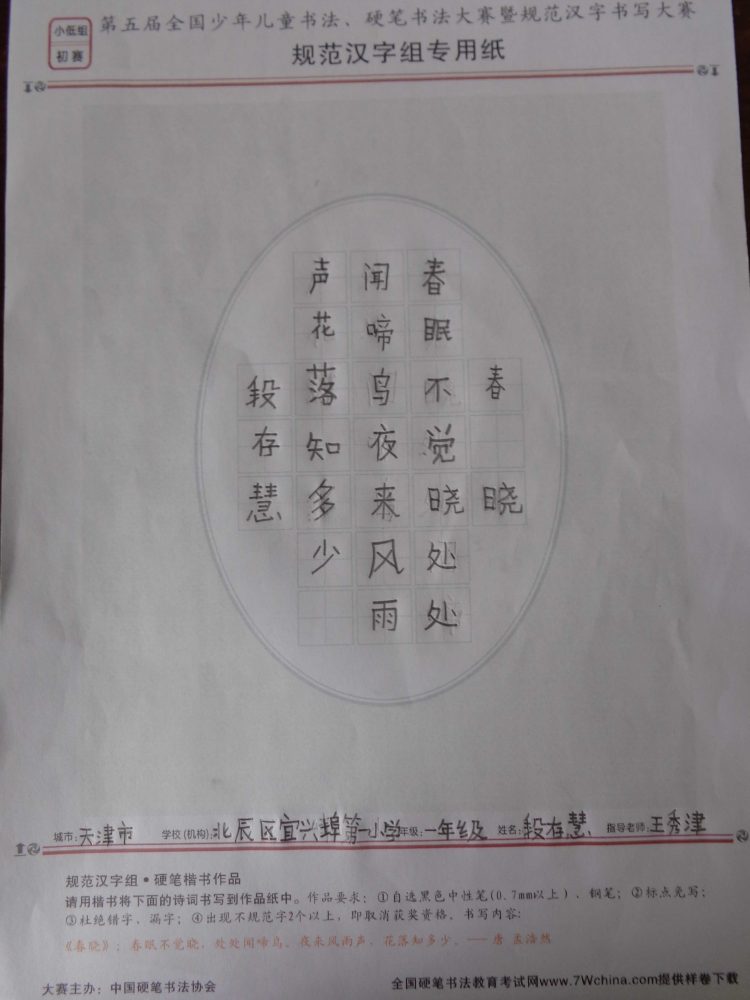 小低组
初赛
第五届全国少年儿童书法、硬笔书法大赛暨规范汉字书写大赛
规范汉字组专用纸
春晓
春眠不觉晓处处
闻啼鸟夜来风雨
声花落知多少
段存慧
城市:天津市 学校(机构):北辰区宜兴埠第一小学 年级:一年级 姓名:段存慧 指导老师:王秀津
规范汉字组•硬笔楷书作品
请用楷书将下面的诗词书写到作品纸中。作品要求:①自选黑色中性笔(0.7mm以上)、钢笔;②标点免写;
③杜绝错字、漏字;④出现不规范字2个以上,即取消获奖资格、书写内容:
《春晓》:春眠不觉晓,处处闻啼鸟。夜来风雨声,花落知多少。——唐 孟浩然
大赛主办:中国硬笔书法协会
全国硬笔书法教育考试网www.7Wchina.com提供样卷下载